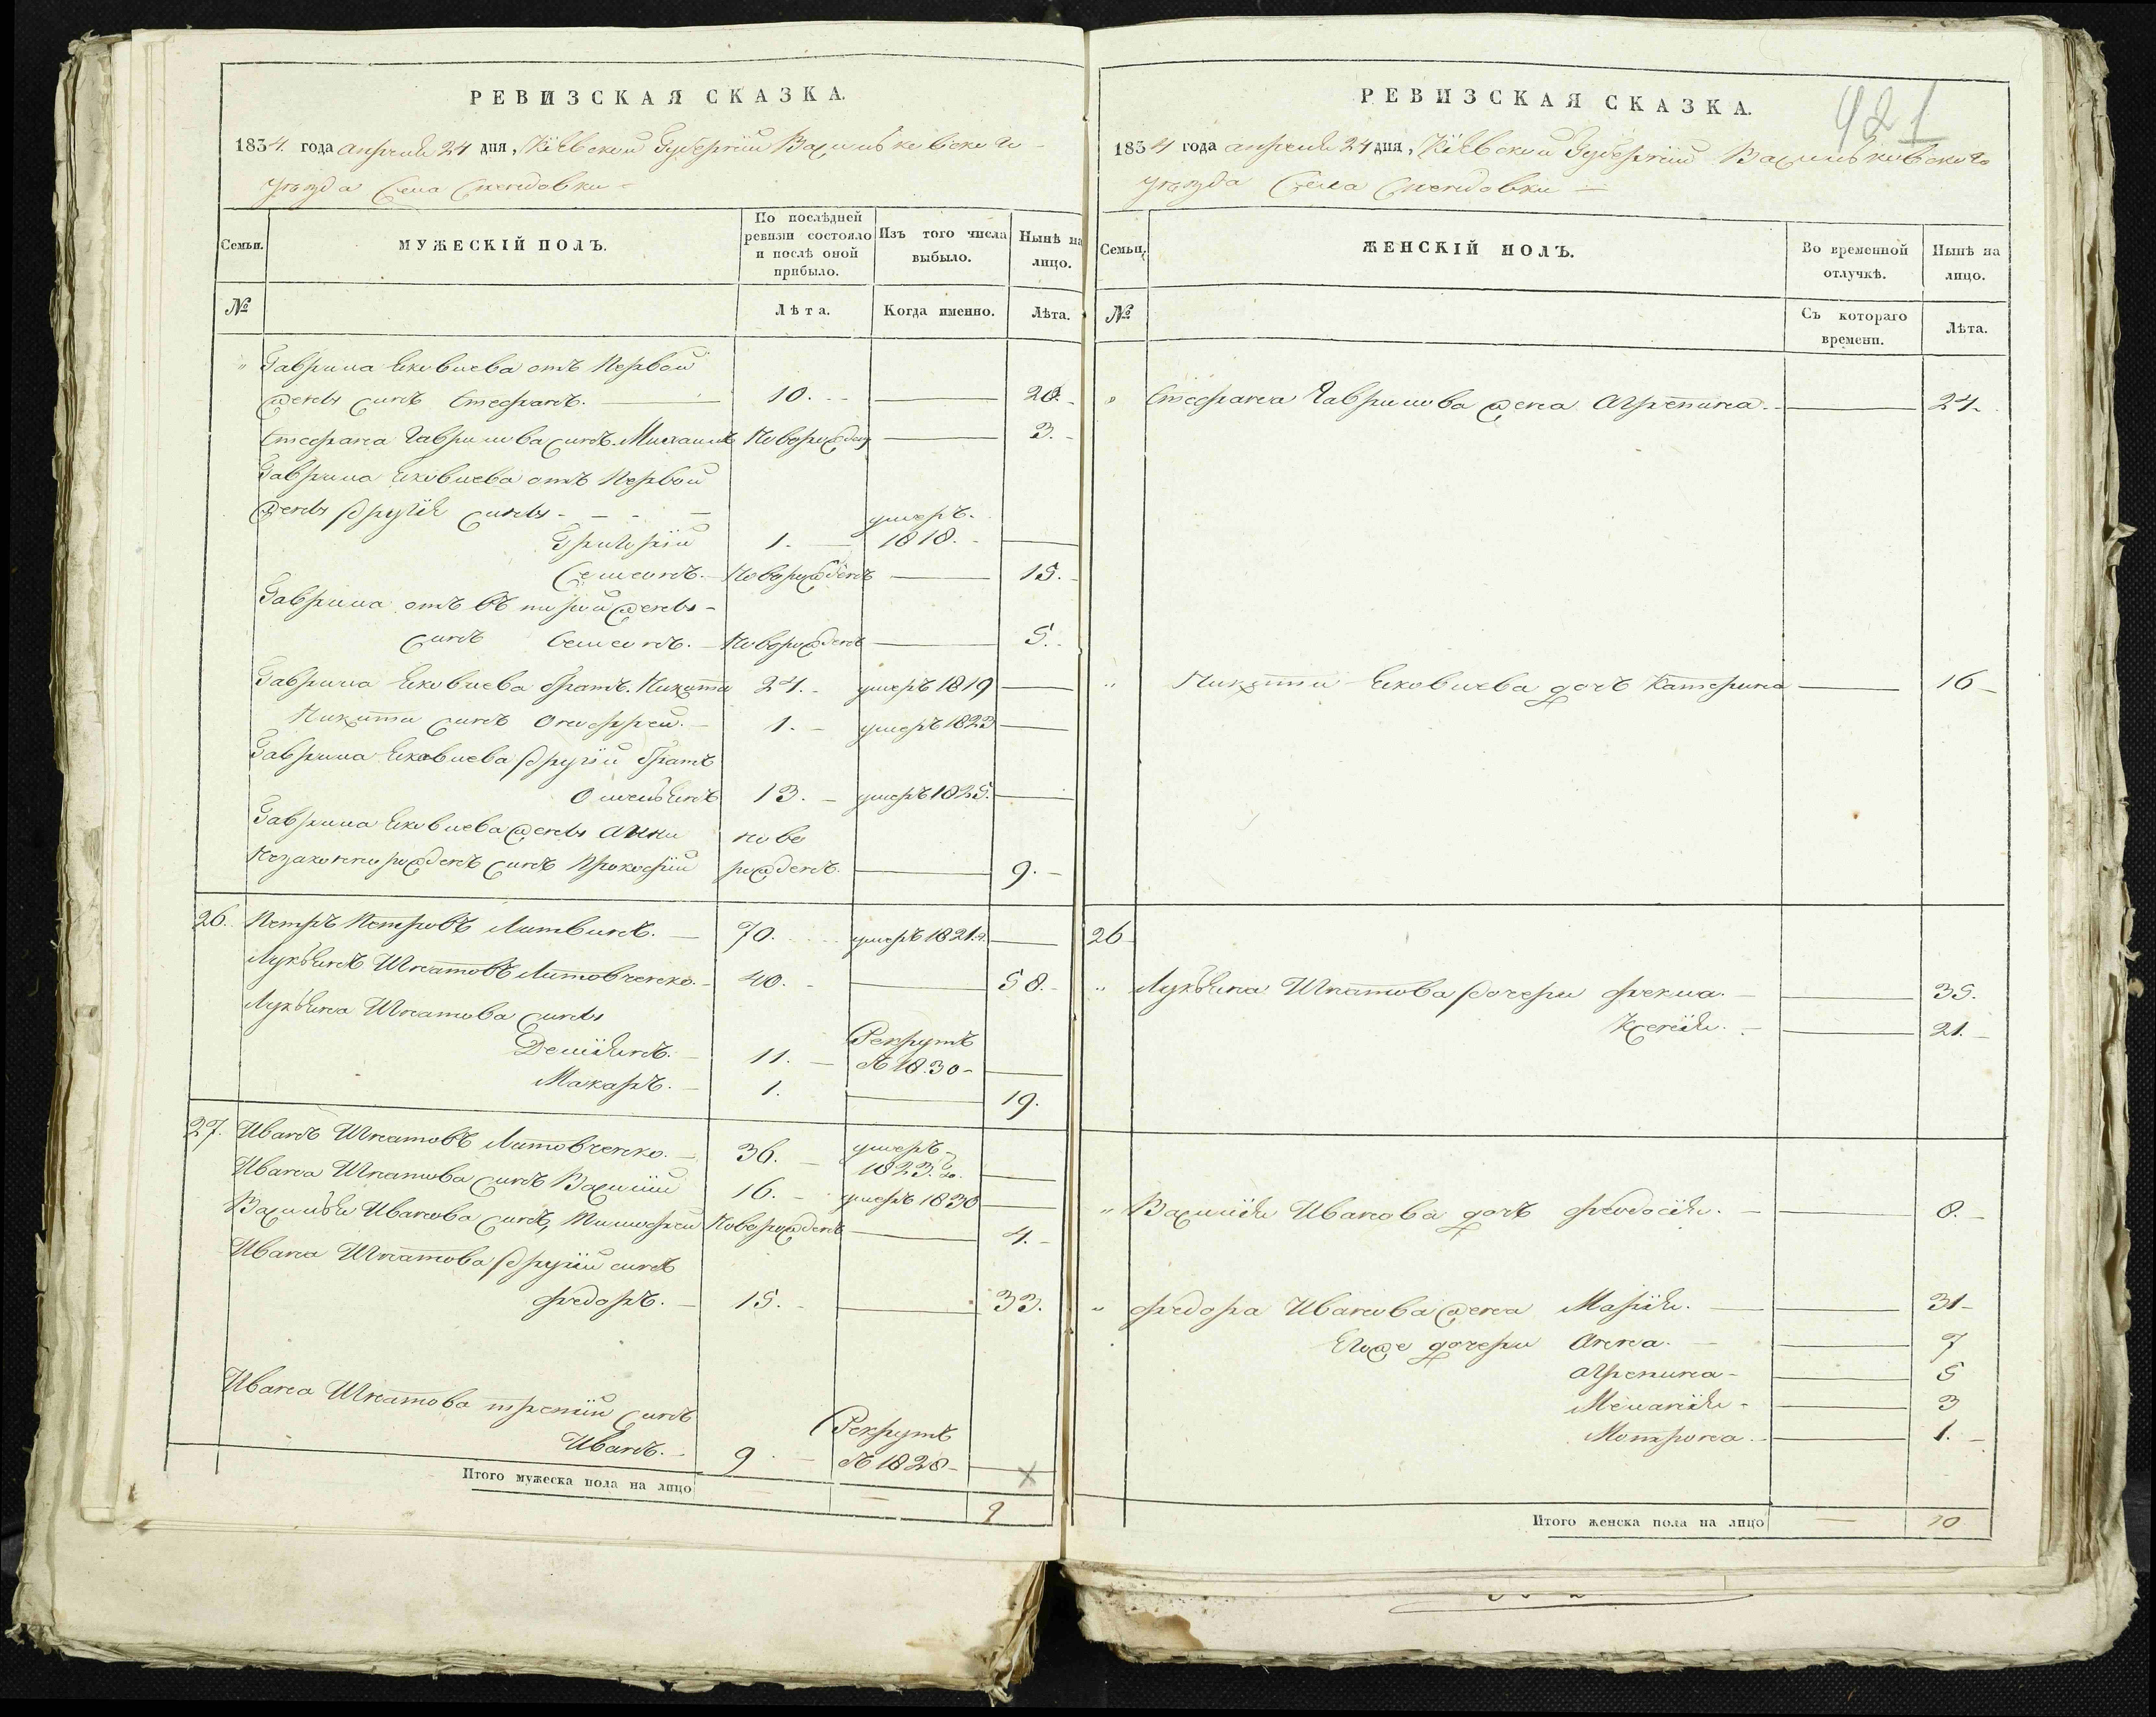 РЕВИЗСКАЯ СКАЗКА.
1834. года апреля 24 дня, Кіевской Губерніи Васильковскаго
уезда Села
Семьи.
МУЖЕСКІЙ ПОЛЪ.
По послѣдней ревизіи состояло и послѣ оной прибыло.
Изъ того числа выбыло.
Нынѣ на лицо.
№
Лѣта.
Когда именно.
Лѣта.
" Гаврила Яковлева отъ Первой
жены сынъ Стефанъ. 10. 20.
Стефана Гаврилова сынъ Михаилъ Новорожден 3.
Гаврила Яковлева отъ Первой
жены другія сыны
умеръ.
Григорій 1. 1818.
Семенъ. Новорожденъ 15.
Гаврила отъ въторой жены
сынъ Семенъ. Новорожденъ 5.
Гаврила Яковлева братъ Никита 24. умеръ 1819
Никити сынъ Онофрей. 1. умеръ 1823
Гаврила Яковлева другій братъ
Омельянъ 13. умеръ 1825.
Гаврила Яковлева жены Анни ново
незаконнорожденъ сынъ Прокофій рожденъ. 9.
26. Петръ Петровъ Литвинъ. 70. умеръ 1821.
Лукьянъ Игнатовъ Литовченко. 40. 58.
Лукьяна Игнатова сыны
Рекрутъ
Деміянъ. 11. въ 1830
Макаръ. 1. 19.
27. Иванъ Игнатовъ Литовченко. 36. умеръ
1823.
Ивана Игнатова сынъ Василій 16. умеръ 1830
Василья Иванова сынъ Тимофей Новорожденъ 4.
Ивана Игнатова другій сынъ
Федоръ. 15. 33.
Ивана Игнатова третій сынъ
Рекрутъ
Иванъ. 9 въ 1828
Итого мужеска пола на лицо 9
421
РЕВИЗСКАЯ СКАЗКА.
1834 года апреля 24 дня, Кіевской Губерніи Васильковскаго
уезда Села
Семьи.
ЖЕНСКІЙ ПОЛЪ.
Во временной отлучкѣ.
Нынѣ на лицо.
№
Съ котораго времени.
Лѣта.
" Стефана Гаврилова жена Агрепина 24.
" Никити Яковлева дочъ Катерина 16
26
" Лукьяна Игнатова дочери Фекла. 35.
Ксенія. 21.
" Василія Иванова дочъ Феодосія. 8.
" Федора Иванова жена Марія. 31
Егоже дочери Анна. 7
Агрепина 5
Меланія 3
Мотрона 1.
Итого женска пола на лицо 10